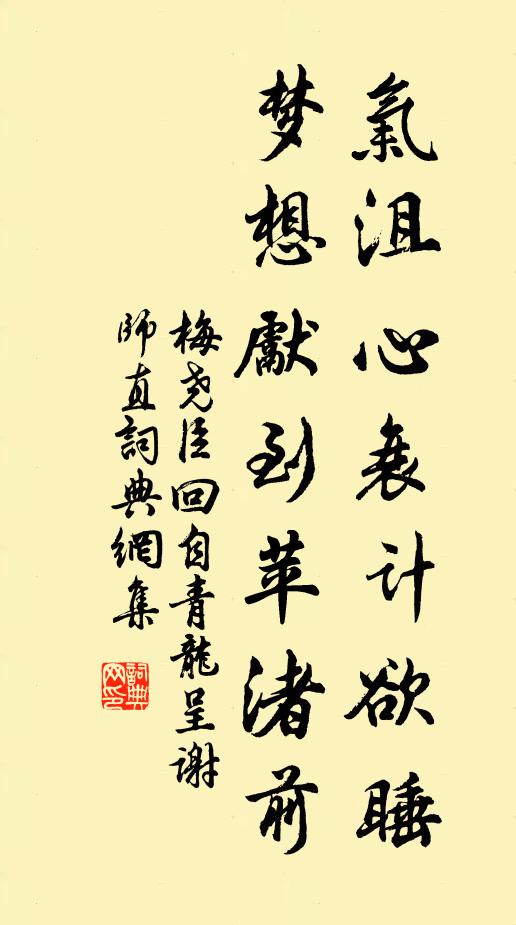 氣沮心衰計欲睡
梦想獻到苹渚前
梅尧臣回自青龍呈谢
師直詞典網集
詞典网印